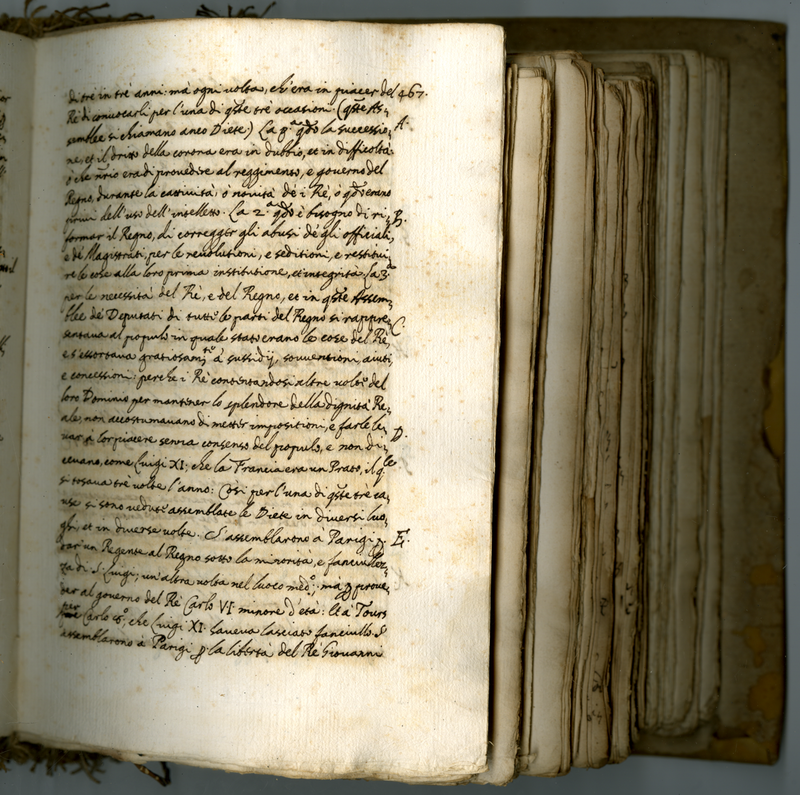 di trè in trè anni: mà ogni uolta, ch'era in piacer del 467.
Rè di conuocarli per l'una di qste trè occasioni. (qste As-
semblee si chiamano anco Diete.) La p.ª qdo la successio- A.
ne, et il dritto della corona era in dubbio, et in difficoltà
ò che era di prouedere al reggimento, e gouerno del
Regno, durante la cattiuità, ò nouità dè i Rè, ò qdo erano
priui dell'uso dell'intelletto. La 2.ª qdo è bisogno di ri- B.
formar il Regno, di corregger gli abusi dè gli officiali,
e dè Magistrati, per le reuolutioni, e seditioni, e restitui-
re le cose alla loro prima institutione, et integrità. La 3.ª
per le necessità del Rè, e del Regno, et in qste Assem-
blee dè Deputati di tutte le parti del Regno si rappre- C.
sentaua al populo in quale stato erano le cose del Rè,
e s'essortaua gratiosam.te à sussidij, souuentioni, aiuti,
e concessioni: perche i Rè contentandosi altre uolte del
loro Dominio per mantener lo splendore della dignità Re-
ale, non accostumauano di metter impositioni, e farle le- D.
uar p lor piacere senza consenso del populo, e non di-
ceuano, come Luigi XI. che la Francia era un Prato, il q.le
si tosaua trè uolte l'anno: Cosi per l'una di qste trè ca-
use si sono uedute assemblate le Diete in diuersi luo-
ghi, et in diuerse uolte. S'assemblarono à Parigi p E.
dar un Regente al Regno sotto la minorità, e fanciullez-
za di S. Luigi; un'altra uolta nel luoco med.º, ma p proue-
der al gouerno del Rè Carlo VI. minore d'età: Et à Tours
per Carlo 8.º, che Luigi XI. haueua lasciato fanciullo. S'
assemblarono à Parigi p la libertà del Rè Giouanni